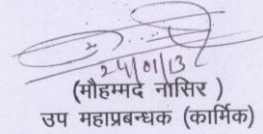 24/01/13
(मौहम्मद नासिर )
उप महाप्रबन्धक (कार्मिक)